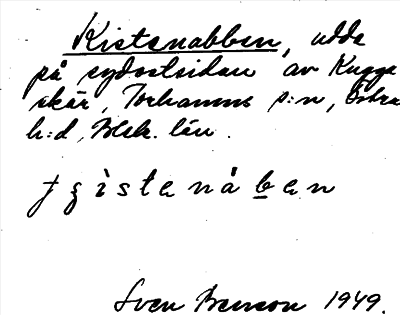 Kistenabben, udde
på sydostsidan av Kugga
skär, Torhamns s:n, Östra
h:d, Blek. län.
isstenaben
Sven Benson 1949.